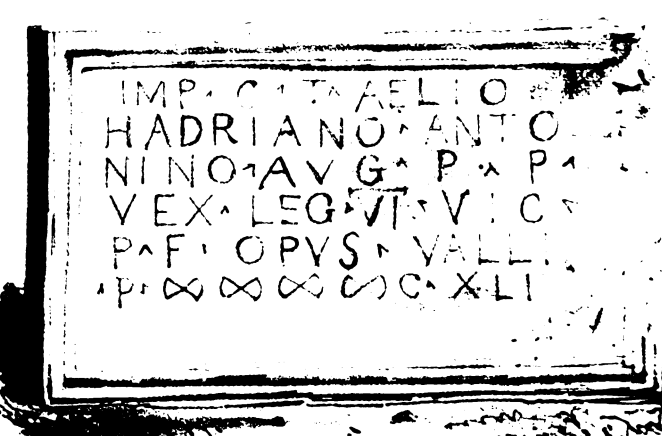 IMP · C · T · AELIO
HADRIANO · ANTO
NINO · AVG · P · P ·
VEX · LEG · VI · VIC ·
P · F · OPVS · VALLI
· P · ∞ ∞ ∞ ∞ C · XLI